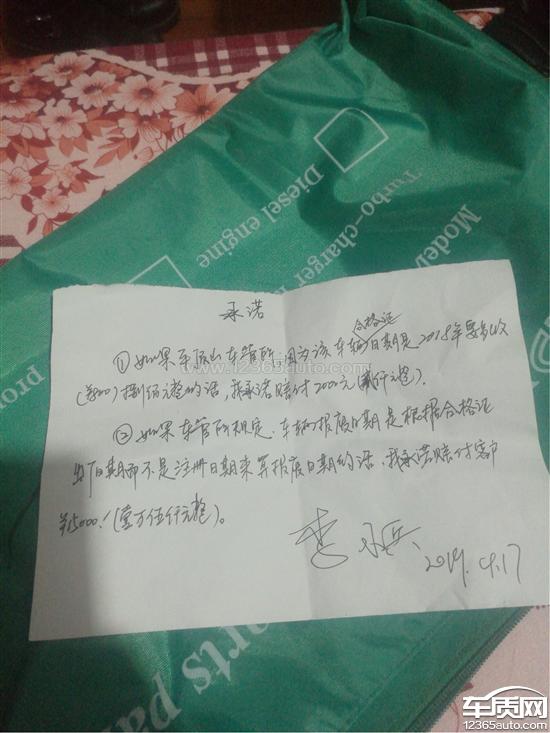 Model
Turbo-charger
Diesel engine
承诺
合格证
①如果平顶山车管所因为该车辆日期是2018年要多收
(¥800)捌佰元整的话,我承诺赔付2000元(贰仟元整)。
②如果车管所规定、车辆报废日期是根据合格证
出厂日期而不是注册日期来算报废日期的话,我承诺赔付客户
¥15000!(壹万伍仟元整)。
2019.4.17
www.12365auto.com
arts pa
车质网
12365auto.com